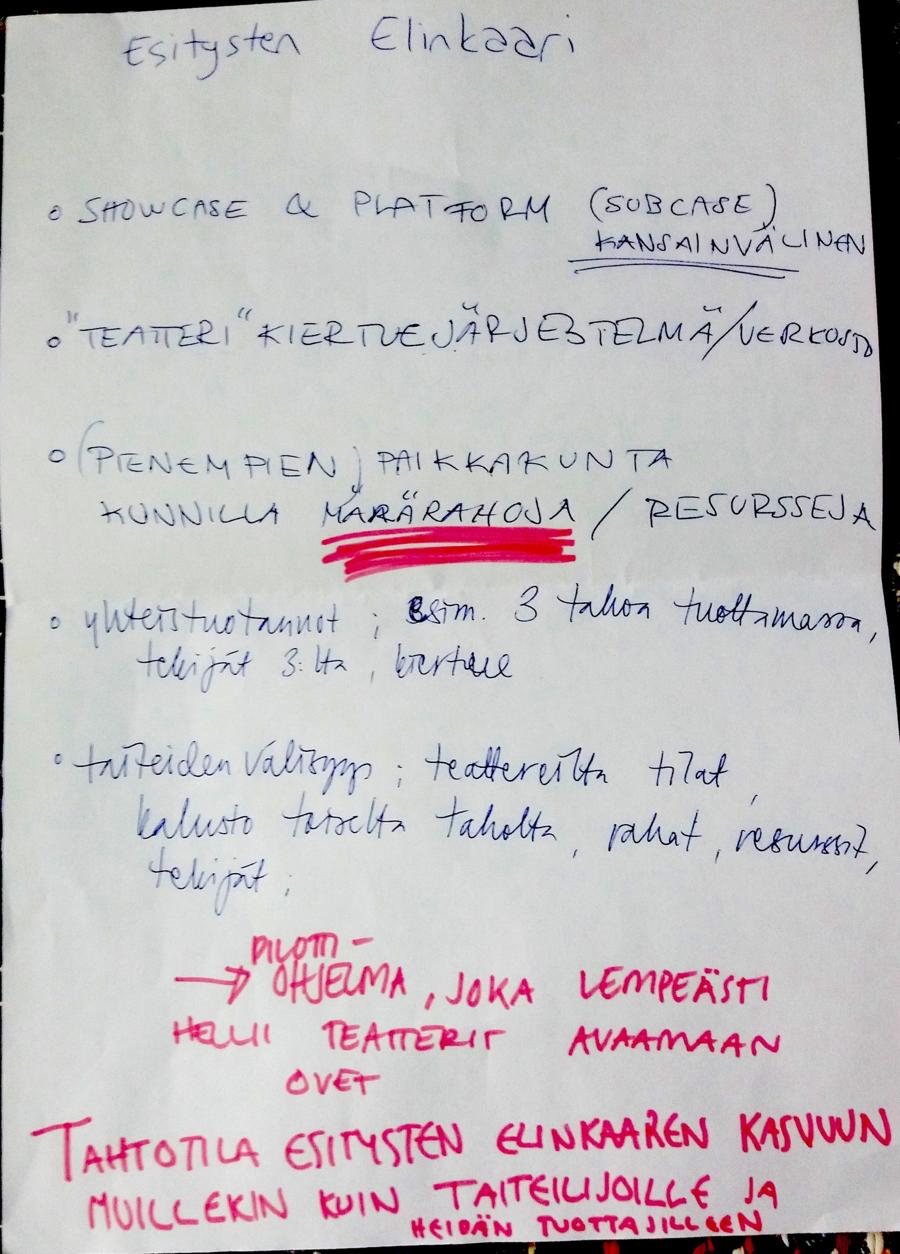 Esitysten Elinkaari
• SHOWCASE & PLATFORM (SUBCASE)
KANSAINVÄLINEN
• "TEATTERI" KIERTUEJÄRJESTELMÄ/VERKOSTO
• (PIENEMPIEN) PAIKKAKUNTA
KUNNILLA MÄÄRÄRAHOJA / RESURSSEJA
• yhteistuotannot ; esim. 3 tahoa tuottamassa,
tekijät 3:lta, kiertue
• taiteiden välisyys ; teattereilta tilat,
kalusto toiselta taholta, rahat, resurssit,
tekijät ;
PILOTTI-
→ OHJELMA, JOKA LEMPEÄSTI
HELLII TEATTERIT AVAAMAAN
OVET
TAHTOTILA ESITYSTEN ELINKAAREN KASVUUN
MUILLEKIN KUIN TAITEILIJOILLE JA
HEIDÄN TUOTTAJILLEEN